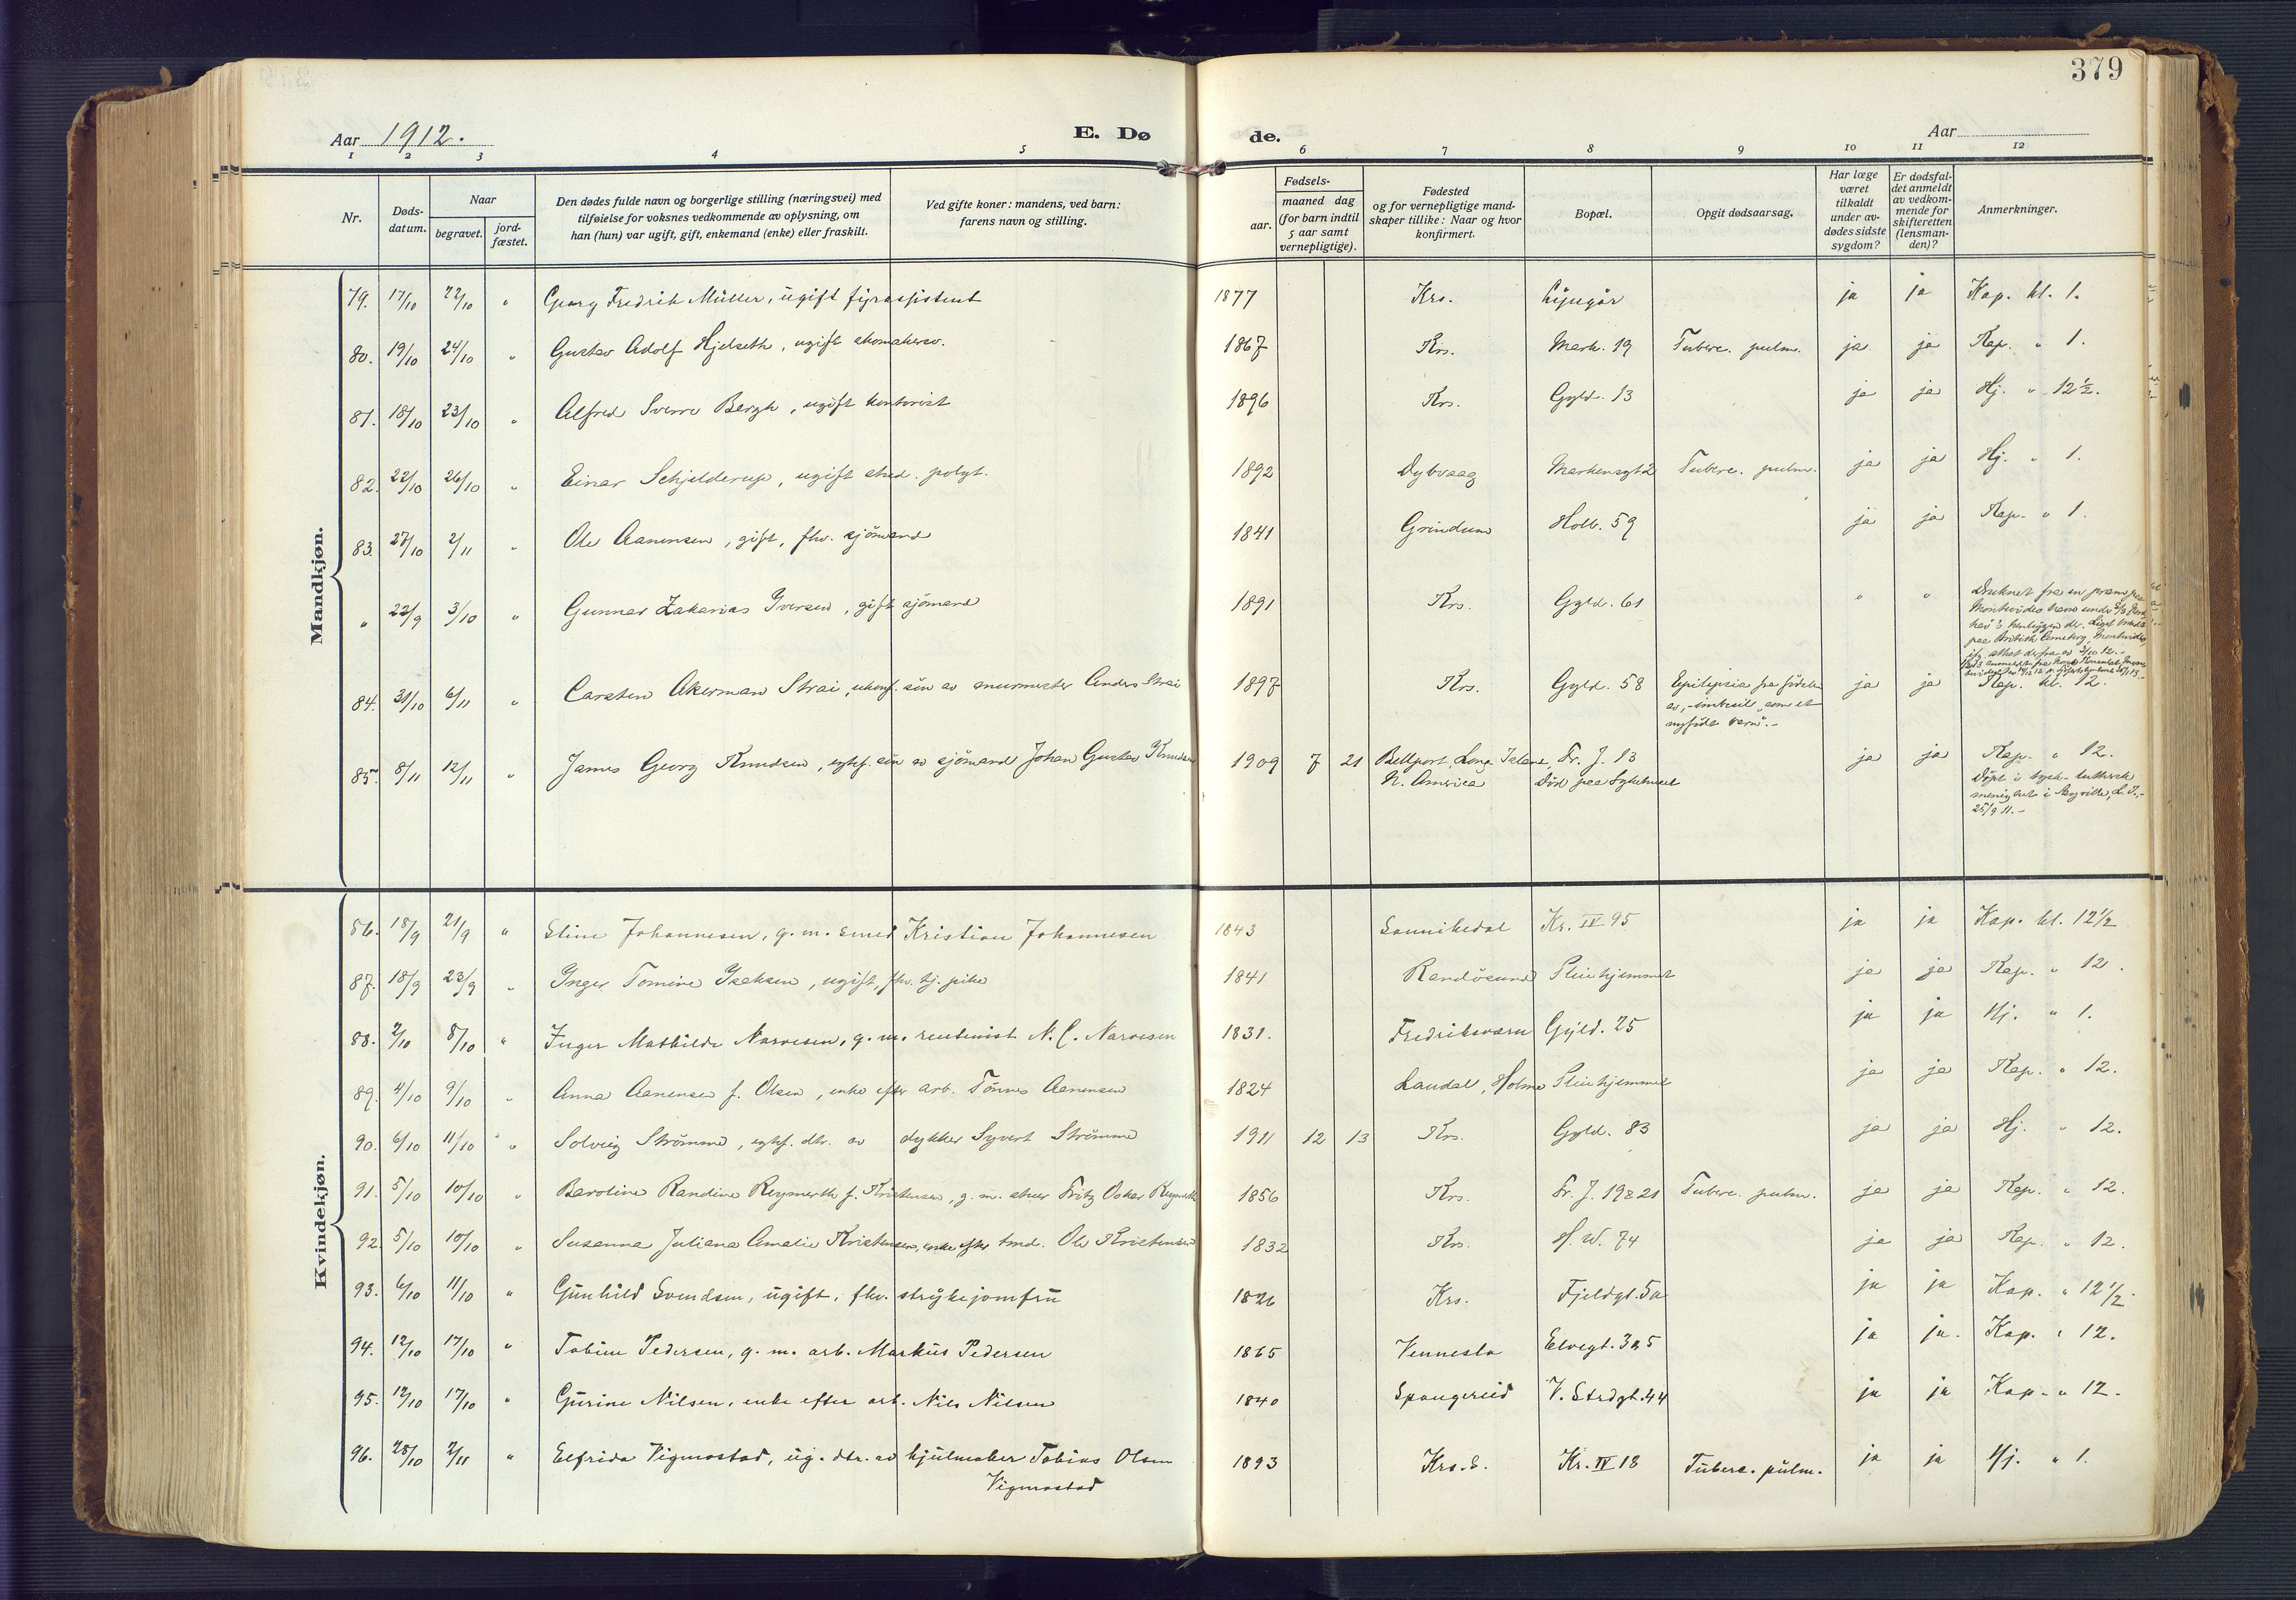 379
Aar 1912.
E. Dø
de.
Aar
1 2 3 4 5 6 7 8 9 10 11 12
Nr.
Døds-
datum.
Naar
begravet.
jord-
fæstet.
Den dødes fulde navn og borgerlige stilling (næringsvei) med
tilføielse for voksnes vedkommende av oplysning, om
han (hun) var ugift, gift, enkemand (enke) eller fraskilt.
Ved gifte koner: mandens, ved barn:
farens navn og stilling.
Fødsels-
aar.
maaned dag
(for barn indtil
5 aar samt
vernepligtige).
Fødested
og for vernepligtige mand-
skaper tillike: Naar og hvor
konfirmert.
Bopæl.
Opgit dødsaarsag.
Har læge
været
tilkaldt
under av-
dødes sidste
sygdom?
Er dødsfal-
det anmeldt
av vedkom-
mende for
skifteretten
(lensman-
den)?
Anmerkninger.
Mandkjøn.
79. 17/10 22/10 " Georg Fredrik Müller, ugift fyrassistent 1877 Krs. ja ja Kap. kl. 1.
80. 19/10 24/10 " Gustav Adolf Hjelseth, ugift skomakersv. 1867 Krs. Mark. 19 Tuberc. pulm. ja ja Kap. " 1.
81. 18/10 23/10 " Alfred Sverre Bergh, ugift kontorist 1896 Krs. Gyld. 13 ja ja Hj. " 12½.
82. 22/10 26/10 " Einar Schjelderup, ugift stud. polyt. 1892 Dybvaag Markensgt 2 Tuberc. pulm. ja ja Hj. " 1.
83. 27/10 2/11 " Ole Aanensen, gift, fhv. sjömand 1841 Grindum Holb. 59 ja ja Kap. " 1.
" 22/9 3/10 " Gunnar Zakarias Iversen, gift sjömand 1891 Krs. Gyld. 61 " " Druknet fra en pram paa
Montevideo havn under
paa British Cemetery, Montevideo,
84. 31/10 6/11 " Carsten Akerman Strai, ukonf. sön av murmester Anders Strai 1897 Krs. Gyld. 58 Epilepsia fra födsel ja ja Kap. kl. 12.
av, - imbecil "som et
nyfödt barn". -
85. 8/11 12/11 " James Georg Knudsen, egtef. sön av sjömand Johan Gustav Knudsen 1909 7 21 Bellport, Long Island, Fr. J. 13 ja ja Kap. " 12.
N. America Död paa Sykehuset
Döpt i tysk-luthersk
menighet i Sayville, L. I.,-
25/9 11. -
Kvindekjøn.
86. 18/9 21/9 " Stine Johannesen, g. m. smed Kristian Johannesen 1843 Sannikedal Kr. IV 95 ja ja Kap. kl. 12½
87. 18/9 23/9 " Inger Tomine Isaksen, ugift, fhv. tj. pike 1841 Randösund Pleiehjemmet ja ja Kap. " 12.
88. 2/10 8/10 " Inger Mathilde Narvesen, g. m. rentenist N. C. Narvesen 1831. Fredriksværn Gyld. 25 ja ja Hj. " 1.
89. 4/10 9/10 " Anna Aanensen f. Olsen, enke efter arb. Tönnes Aanensen 1824 Laudal, Holme Pleiehjemmet ja ja Kap. " 12.
90. 6/10 11/10 " Solveig Strömme, egtef. dtr. av dykker Syvert Strömme 1911 12 13 Krs. Gyld. 83 ja ja Hj. " 12.
91. 5/10 10/10 " Baroline Randine Reymerth f. Kristensen, g. m. Fritz Oskar Reymerth 1856 Krs. Fr. J. 19 & 21 Tuberc. pulm. ja ja Kap. " 12.
92. 5/10 10/10 " Susanna Juliana Amalie Kristensen, enke efter tmd. Ole Kristensen 1832 Krs. H. W. 74 ja ja Kap. " 12.
93. 6/10 11/10 " Gunhild Svendsen, ugift, fhv. strykejomfru 1826 Krs. Fjeldgt. 5a ja ja Kap. " 12½
94. 12/10 17/10 " Tobine Pedersen, g. m. arb. Markus Pedersen 1865 Vennesla Elvegt. 3a5 ja ja. Kap. " 12.
95. 12/10 17/10 " Gurine Nilsen, enke efter arb. Nils Nilsen 1840 Spangereid V. Strdgt. 44 ja ja Kap. " 12.
96. 28/10 2/11 " Elfrida Vigmostad, ug. dtr. av hjulmaker Tobias Olsen 1893 Krs. S. Kr. IV 18 Tuberc. pulm. ja ja Hj. " 1.
Vigmostad